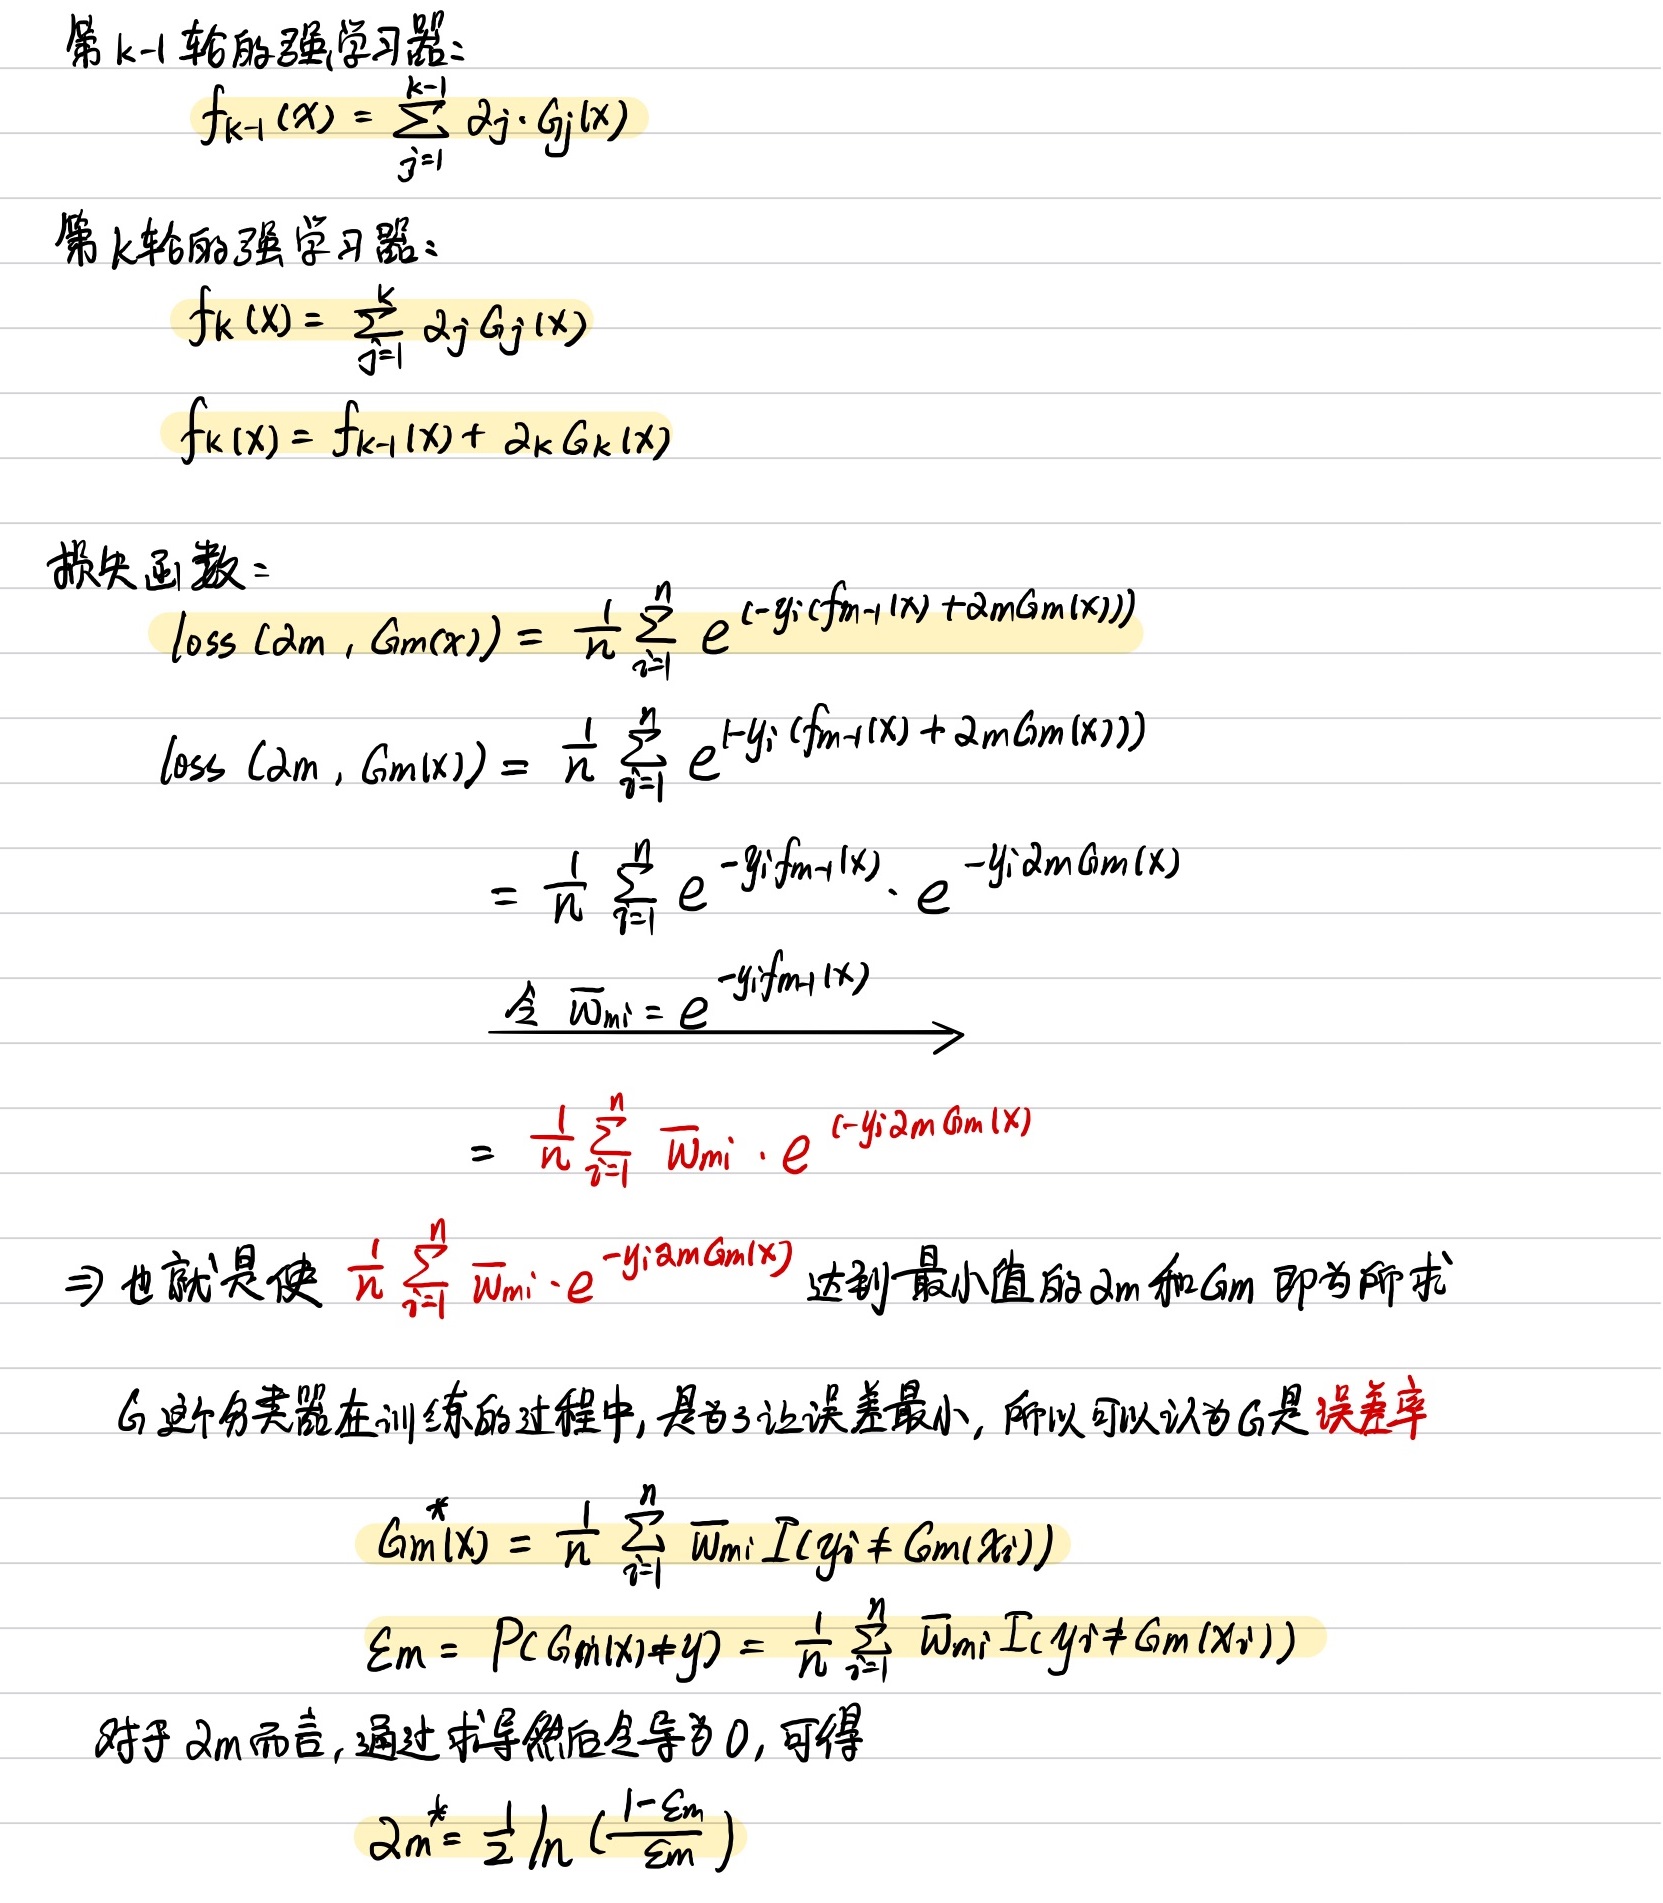 第k-1轮的强学习器：
f_{k-1}(x) = \sum_{j=1}^{k-1} α_j · G_j(x)
第k轮的强学习器：
f_k(x) = \sum_{j=1}^{k} α_j G_j(x)
f_k(x) = f_{k-1}(x) + α_k G_k(x)
损失函数：
loss(α_m, G_m(x)) = \frac{1}{n} \sum_{i=1}^{n} e^{(-y_i(f_{m-1}(x) + α_m G_m(x)))}
loss(α_m, G_m(x)) = \frac{1}{n} \sum_{i=1}^{n} e^{(-y_i(f_{m-1}(x) + α_m G_m(x)))}
= \frac{1}{n} \sum_{i=1}^{n} e^{-y_i f_{m-1}(x)} · e^{-y_i α_m G_m(x)}
令 \overline{w}_{mi} = e^{-y_i f_{m-1}(x)}
= \frac{1}{n} \sum_{i=1}^{n} \overline{w}_{mi} · e^{(-y_i α_m G_m(x)}
⇒ 也就是使 \frac{1}{n} \sum_{i=1}^{n} \overline{w}_{mi} · e^{-y_i α_m G_m(x)} 达到最小值的α_m和G_m 即为所求
G这个分类器在训练的过程中,是为了让误差最小,所以可以认为G是误差率
G_m^*(x) = \frac{1}{n} \sum_{i=1}^{n} \overline{w}_{mi} I(y_i ≠ G_m(x_i))
ε_m = P(G_m(x) ≠ y) = \frac{1}{n} \sum_{i=1}^{n} \overline{w}_{mi} I(y_i ≠ G_m(x_i))
对于α_m而言,通过求导然后令导为0,可得
α_m^* = \frac{1}{2} ln(\frac{1-ε_m}{ε_m})